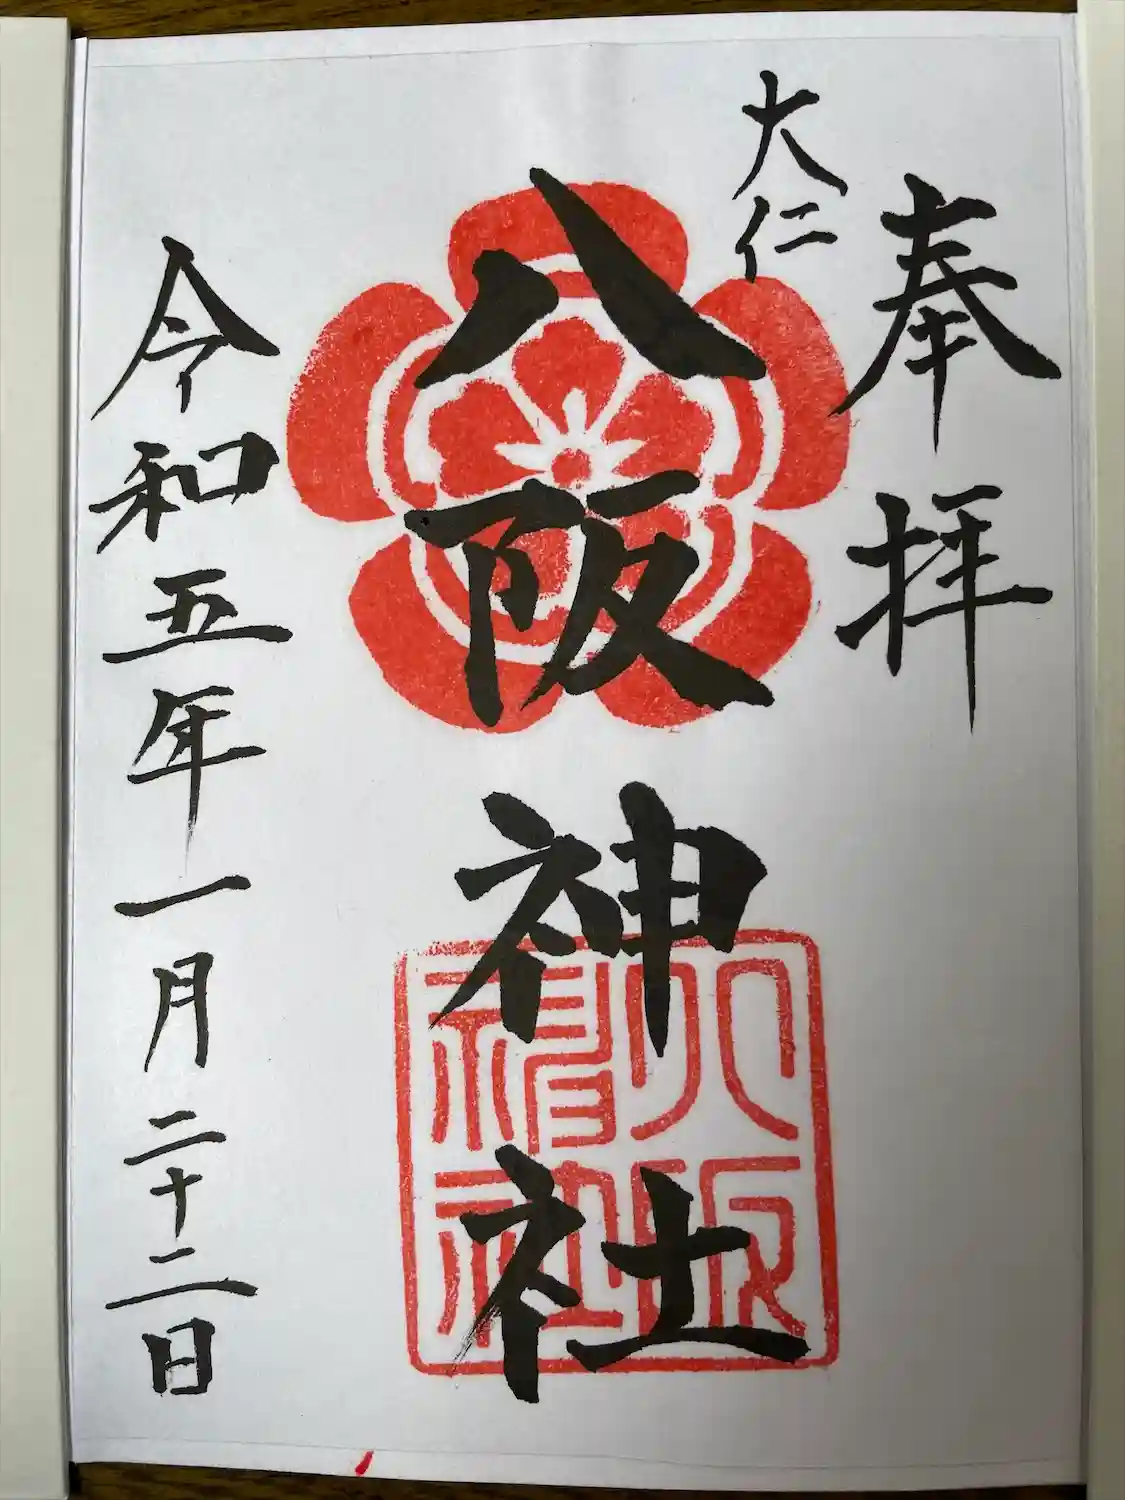 奉拝
大仁
八阪神社
八阪
神社
令和五年一月二十二日